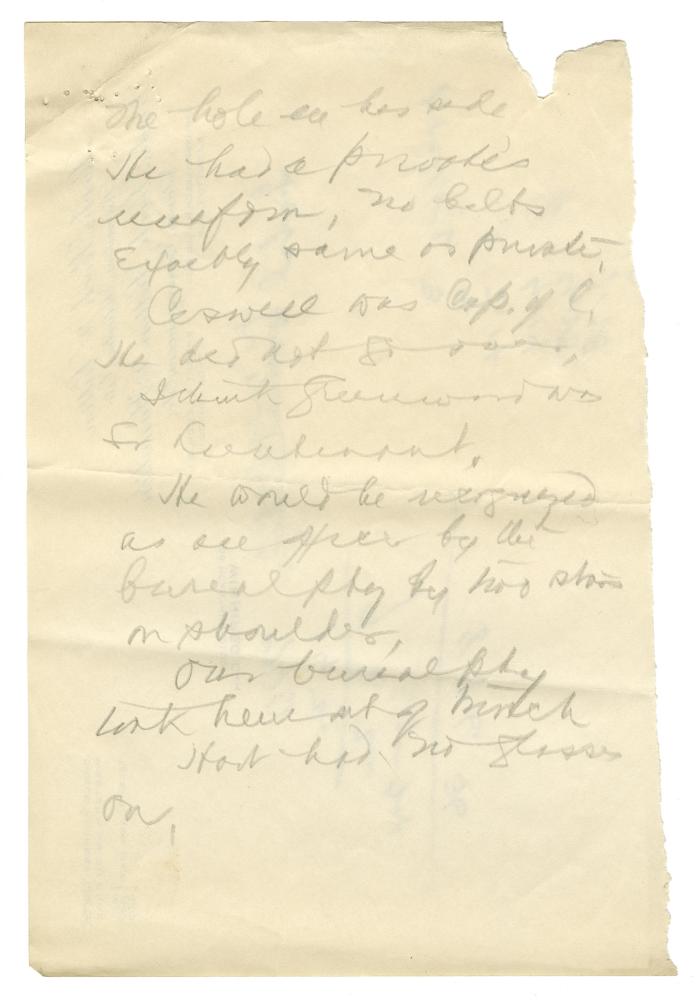 The hole in his side
He had a private's
uniform, no belts
Exactly same as private,
Creswell was Cap. of C.
He did not go over,
I think Greenwood was
Sr Lieutenant.
He would be recognized
as an officer by the
burial pty by two stars
on shoulder,
Our burial pty
took him out of trench
Hart had no glasses
on,